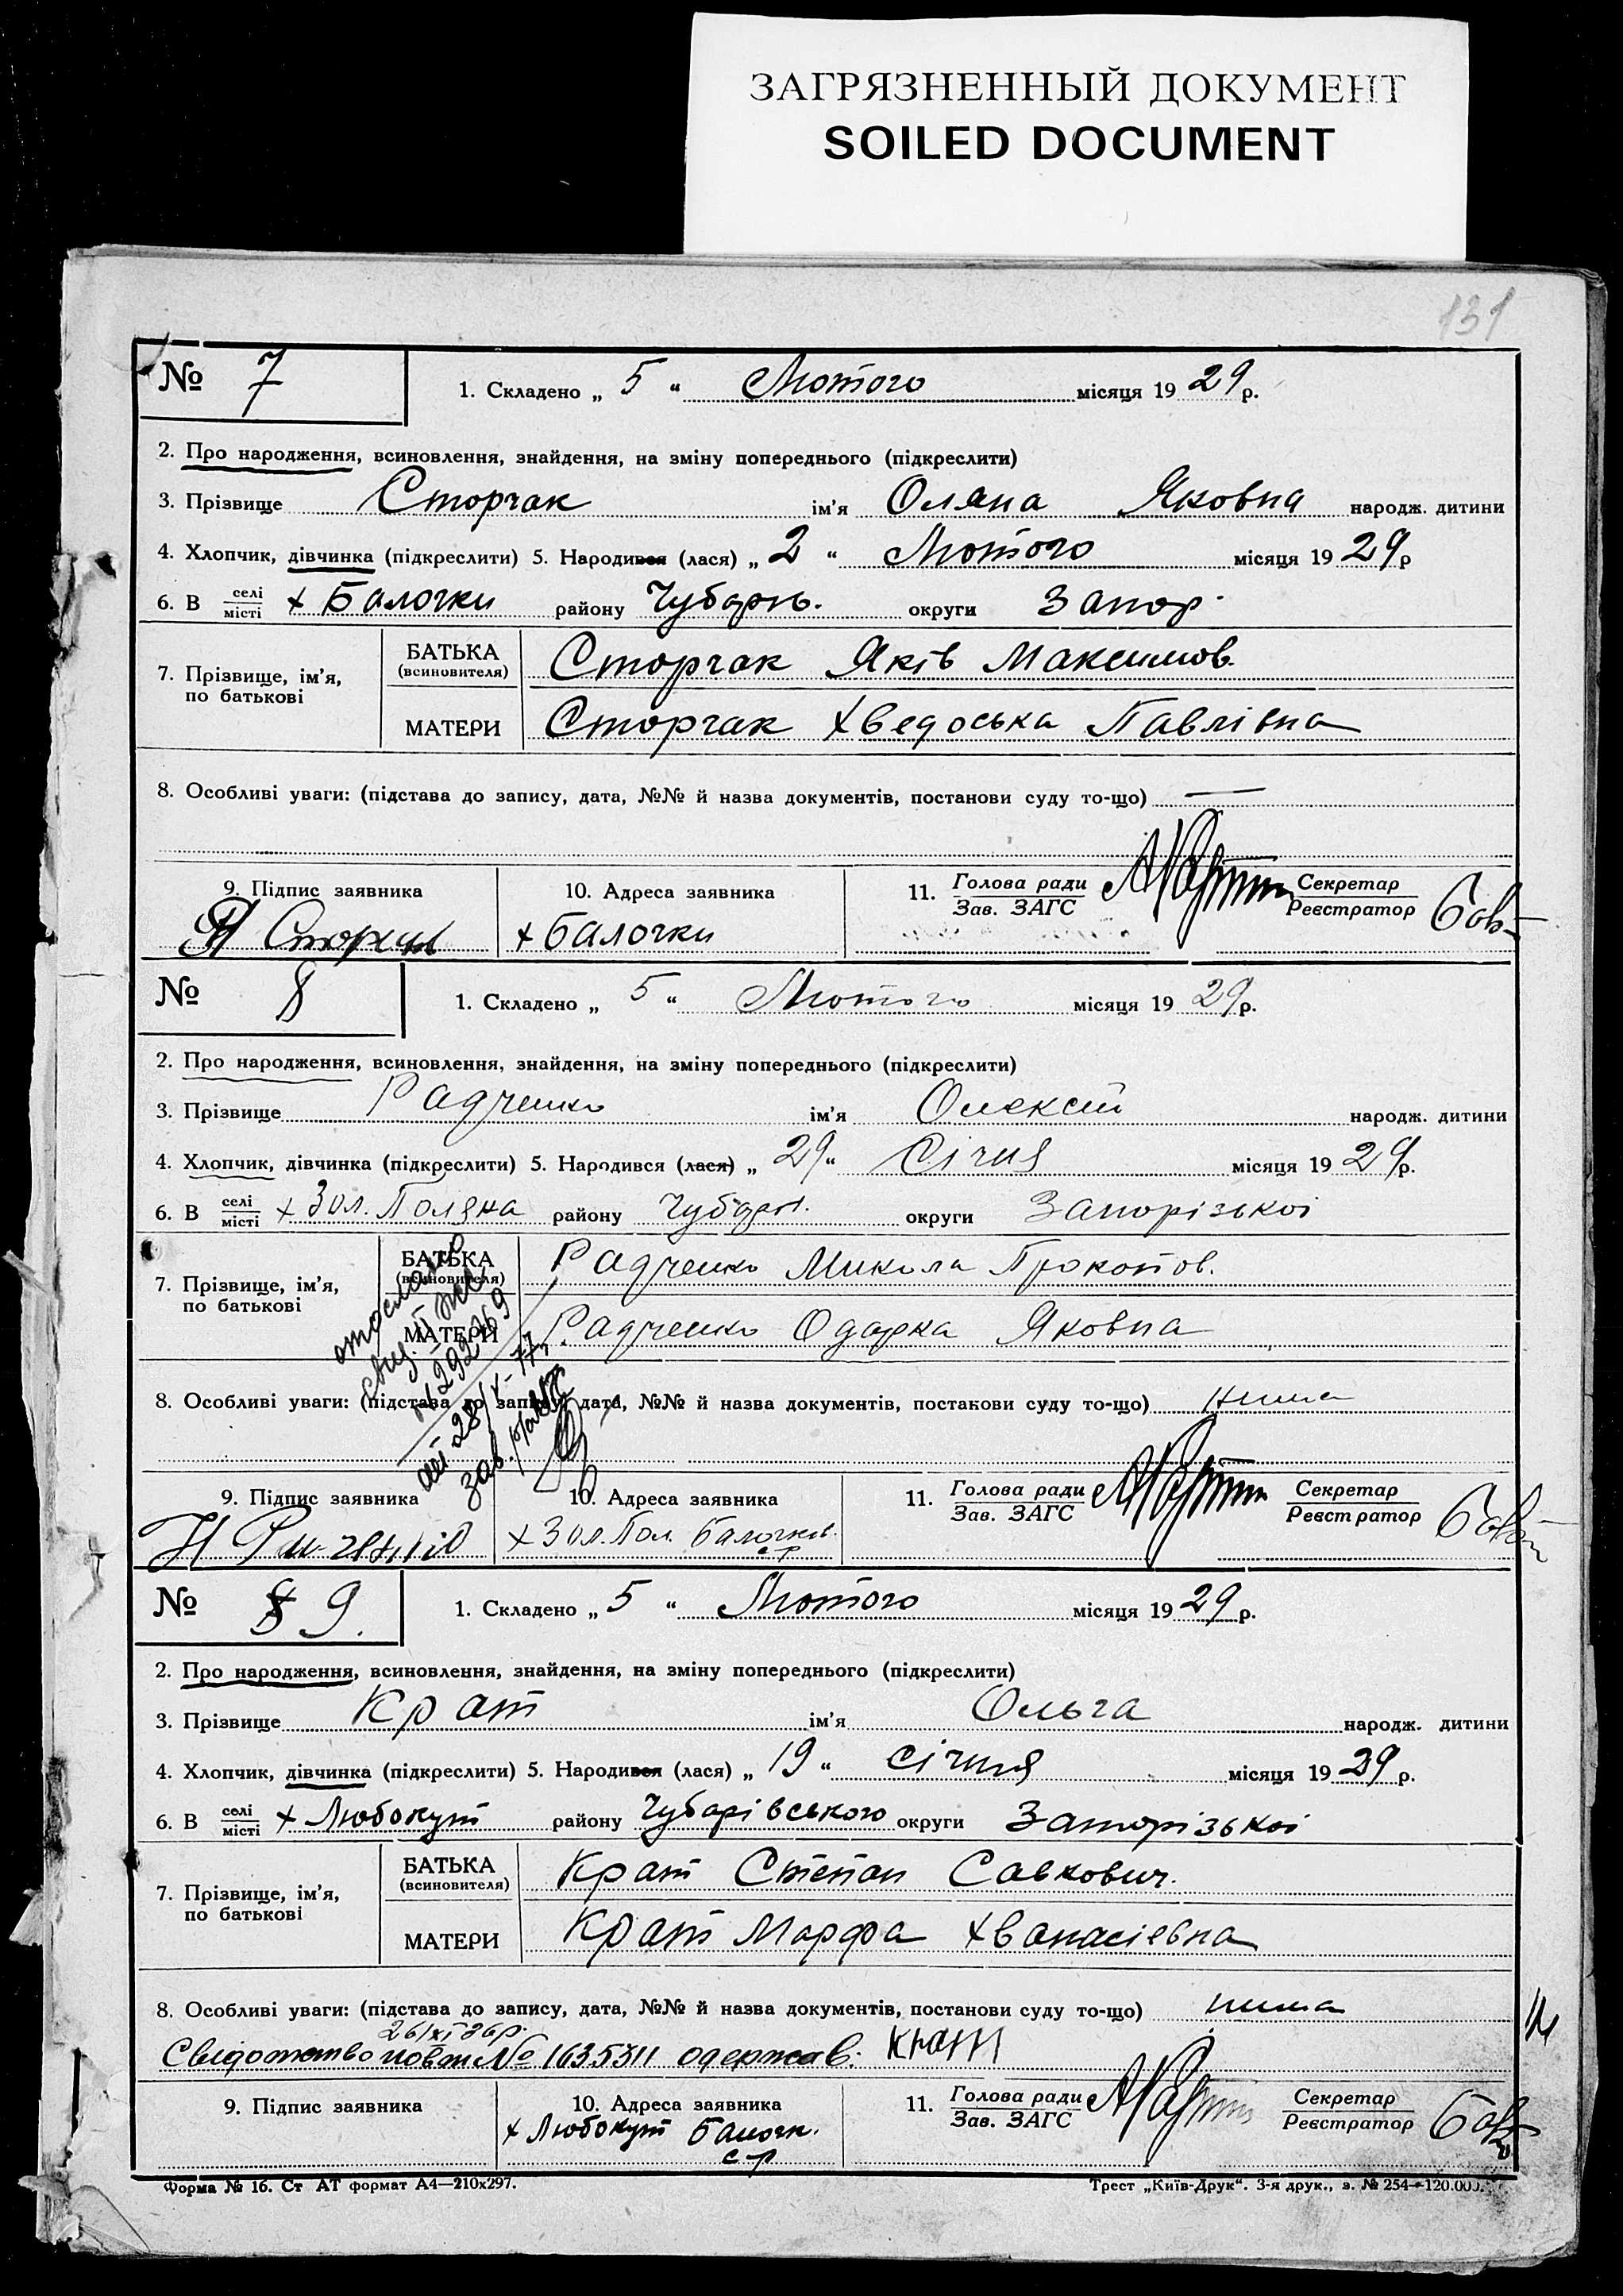 ЗАГРЯЗНЕННЫЙ ДОКУМЕНТ
SOILED DOCUMENT
131
№ 7
1. Складено „ 5 “ Лютого місяця 1929 р.
2. Про народження, всиновлення, знайдення, на зміну попереднього (підкреслити)
3. Прізвище Сторчак ім'я Оляна Яковна народж. дитини
4. Хлопчик, дівчинка (підкреслити) 5. Народився (лася) „ 2 “ Лютого місяця 1929 р
6. В селі/місті х Балочки району Чубарів. округи Запор.
7. Прізвище, ім'я, по батькові
БАТЬКА (всиновителя) Сторчак Яків Максимов.
МАТЕРИ Сторчак Хведоська Павлівна
8. Особливі уваги: (підстава до запису, дата, №№ й назва документів, постанови суду то-що) —
9. Підпис заявника
10. Адреса заявника
11. Голова ради / Зав. ЗАГС
Секретар / Реєстратор
х Балочки
№ 8
1. Складено „ 5 “ Лютого місяця 1929 р.
2. Про народження, всиновлення, знайдення, на зміну попереднього (підкреслити)
3. Прізвище Радченко ім'я Олексій народж. дитини
4. Хлопчик, дівчинка (підкреслити) 5. Народився (лася) „ 29 “ Січня місяця 1929 р.
6. В селі/місті х Зол. Поляна району Чубарів. округи Запорізької
7. Прізвище, ім'я, по батькові
БАТЬКА (всиновителя) Радченко Микола Прокопов.
МАТЕРИ Радченко Одарка Яковна
8. Особливі уваги: (підстава до запису, дата, №№ й назва документів, постанови суду то-що) нима
9. Підпис заявника
10. Адреса заявника
11. Голова ради / Зав. ЗАГС
Секретар / Реєстратор
х Зол. Пол. Балочків. с-р
№ 8 9.
1. Складено „ 5 “ Лютого місяця 1929 р.
2. Про народження, всиновлення, знайдення, на зміну попереднього (підкреслити)
3. Прізвище Крат ім'я Ольга народж. дитини
4. Хлопчик, дівчинка (підкреслити) 5. Народився (лася) „ 19 “ січня місяця 1929 р.
6. В селі/місті х Любокут району Чубарівського округи Запорізької
7. Прізвище, ім'я, по батькові
БАТЬКА (всиновителя) Крат Степан Савкович.
МАТЕРИ Крат Марфа Хванасіевна
8. Особливі уваги: (підстава до запису, дата, №№ й назва документів, постанови суду то-що) нима
26/XI 36р.
Свідотство повт № 1635311 одержав: Крат
9. Підпис заявника
10. Адреса заявника
11. Голова ради / Зав. ЗАГС
Секретар / Реєстратор
х Любокут Балочк.
с-р
Форма № 16. Ст АТ формат А4—210х297.
Трест „Київ-Друк“. 3-я друк., з. № 254—120.000.